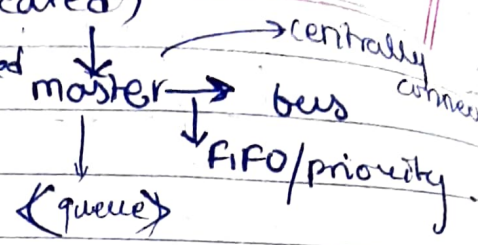 centrally
master → bus
FIFO/priority.
<queue>